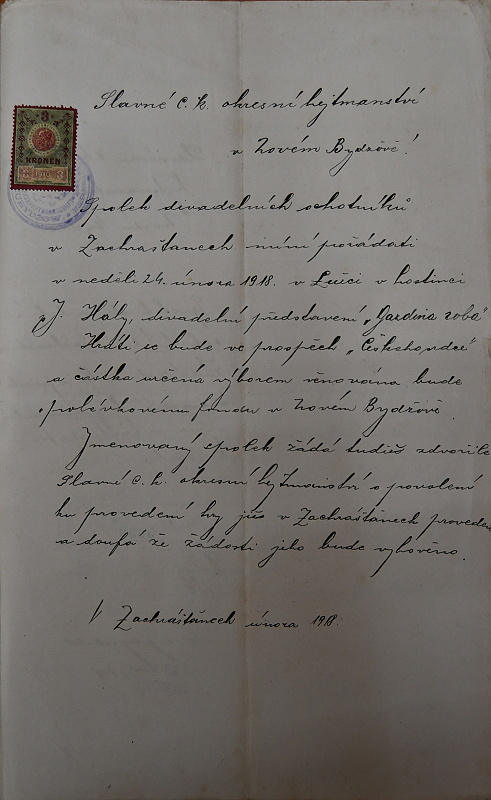 3
KRONEN
Slavné c. k. okresní hejtmanství
v Novém Bydžově!
Spolek divadelních ochotníků
v Zachrašťanech míní pořádati
v neděli 24. února 1918. v Lužci v hostinci
p. J. Hály, divadelní představení „Gazdina roba"
Hráti se bude ve prospěch „Českého srdce"
a částka určená výborem věnována bude
polévkovému fondu v Novém Bydžově.
Jmenovaný spolek žádá tudíž zdvořile
Slavné c. k. okresní hejtmanství o povolení
ku provedení hry již v Zachrášťanech provedené
a doufá že žádosti jeho bude vyhověno.
V Zachrášťanech února 1918.